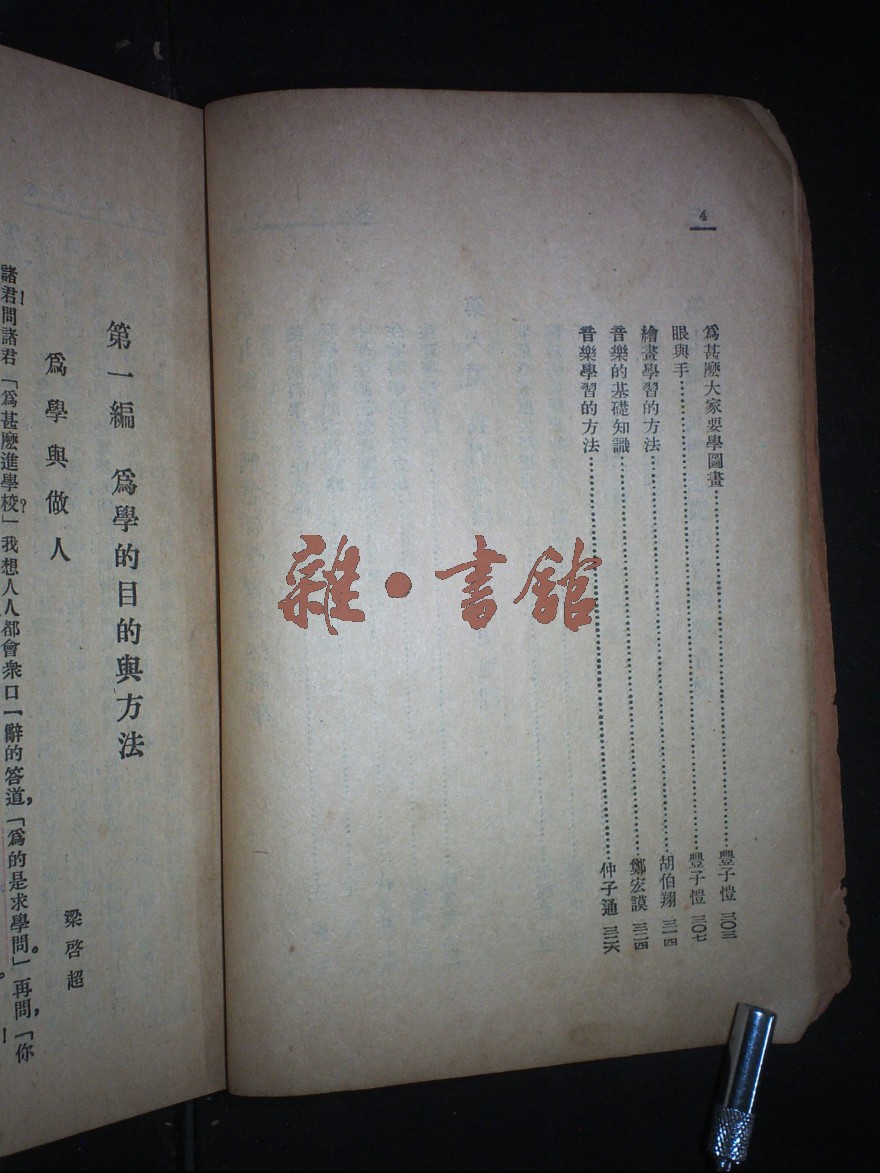 4
爲甚麽大家要學圖畫……豐子愷 三〇三
眼與手……豐子愷 三〇七
繪畫學習的方法……胡伯翔 三一四
音樂的基礎知識……鄭宏謨 三二四
音樂學習的方法……仲子通 三二六
雜·書館
第一編 爲學的目的與方法
爲學與做人
梁啓超
諸君!我問諸君「爲甚麽進學校?」我想人人都會衆口一辭的答道,「爲的是求學問。」再問,「你